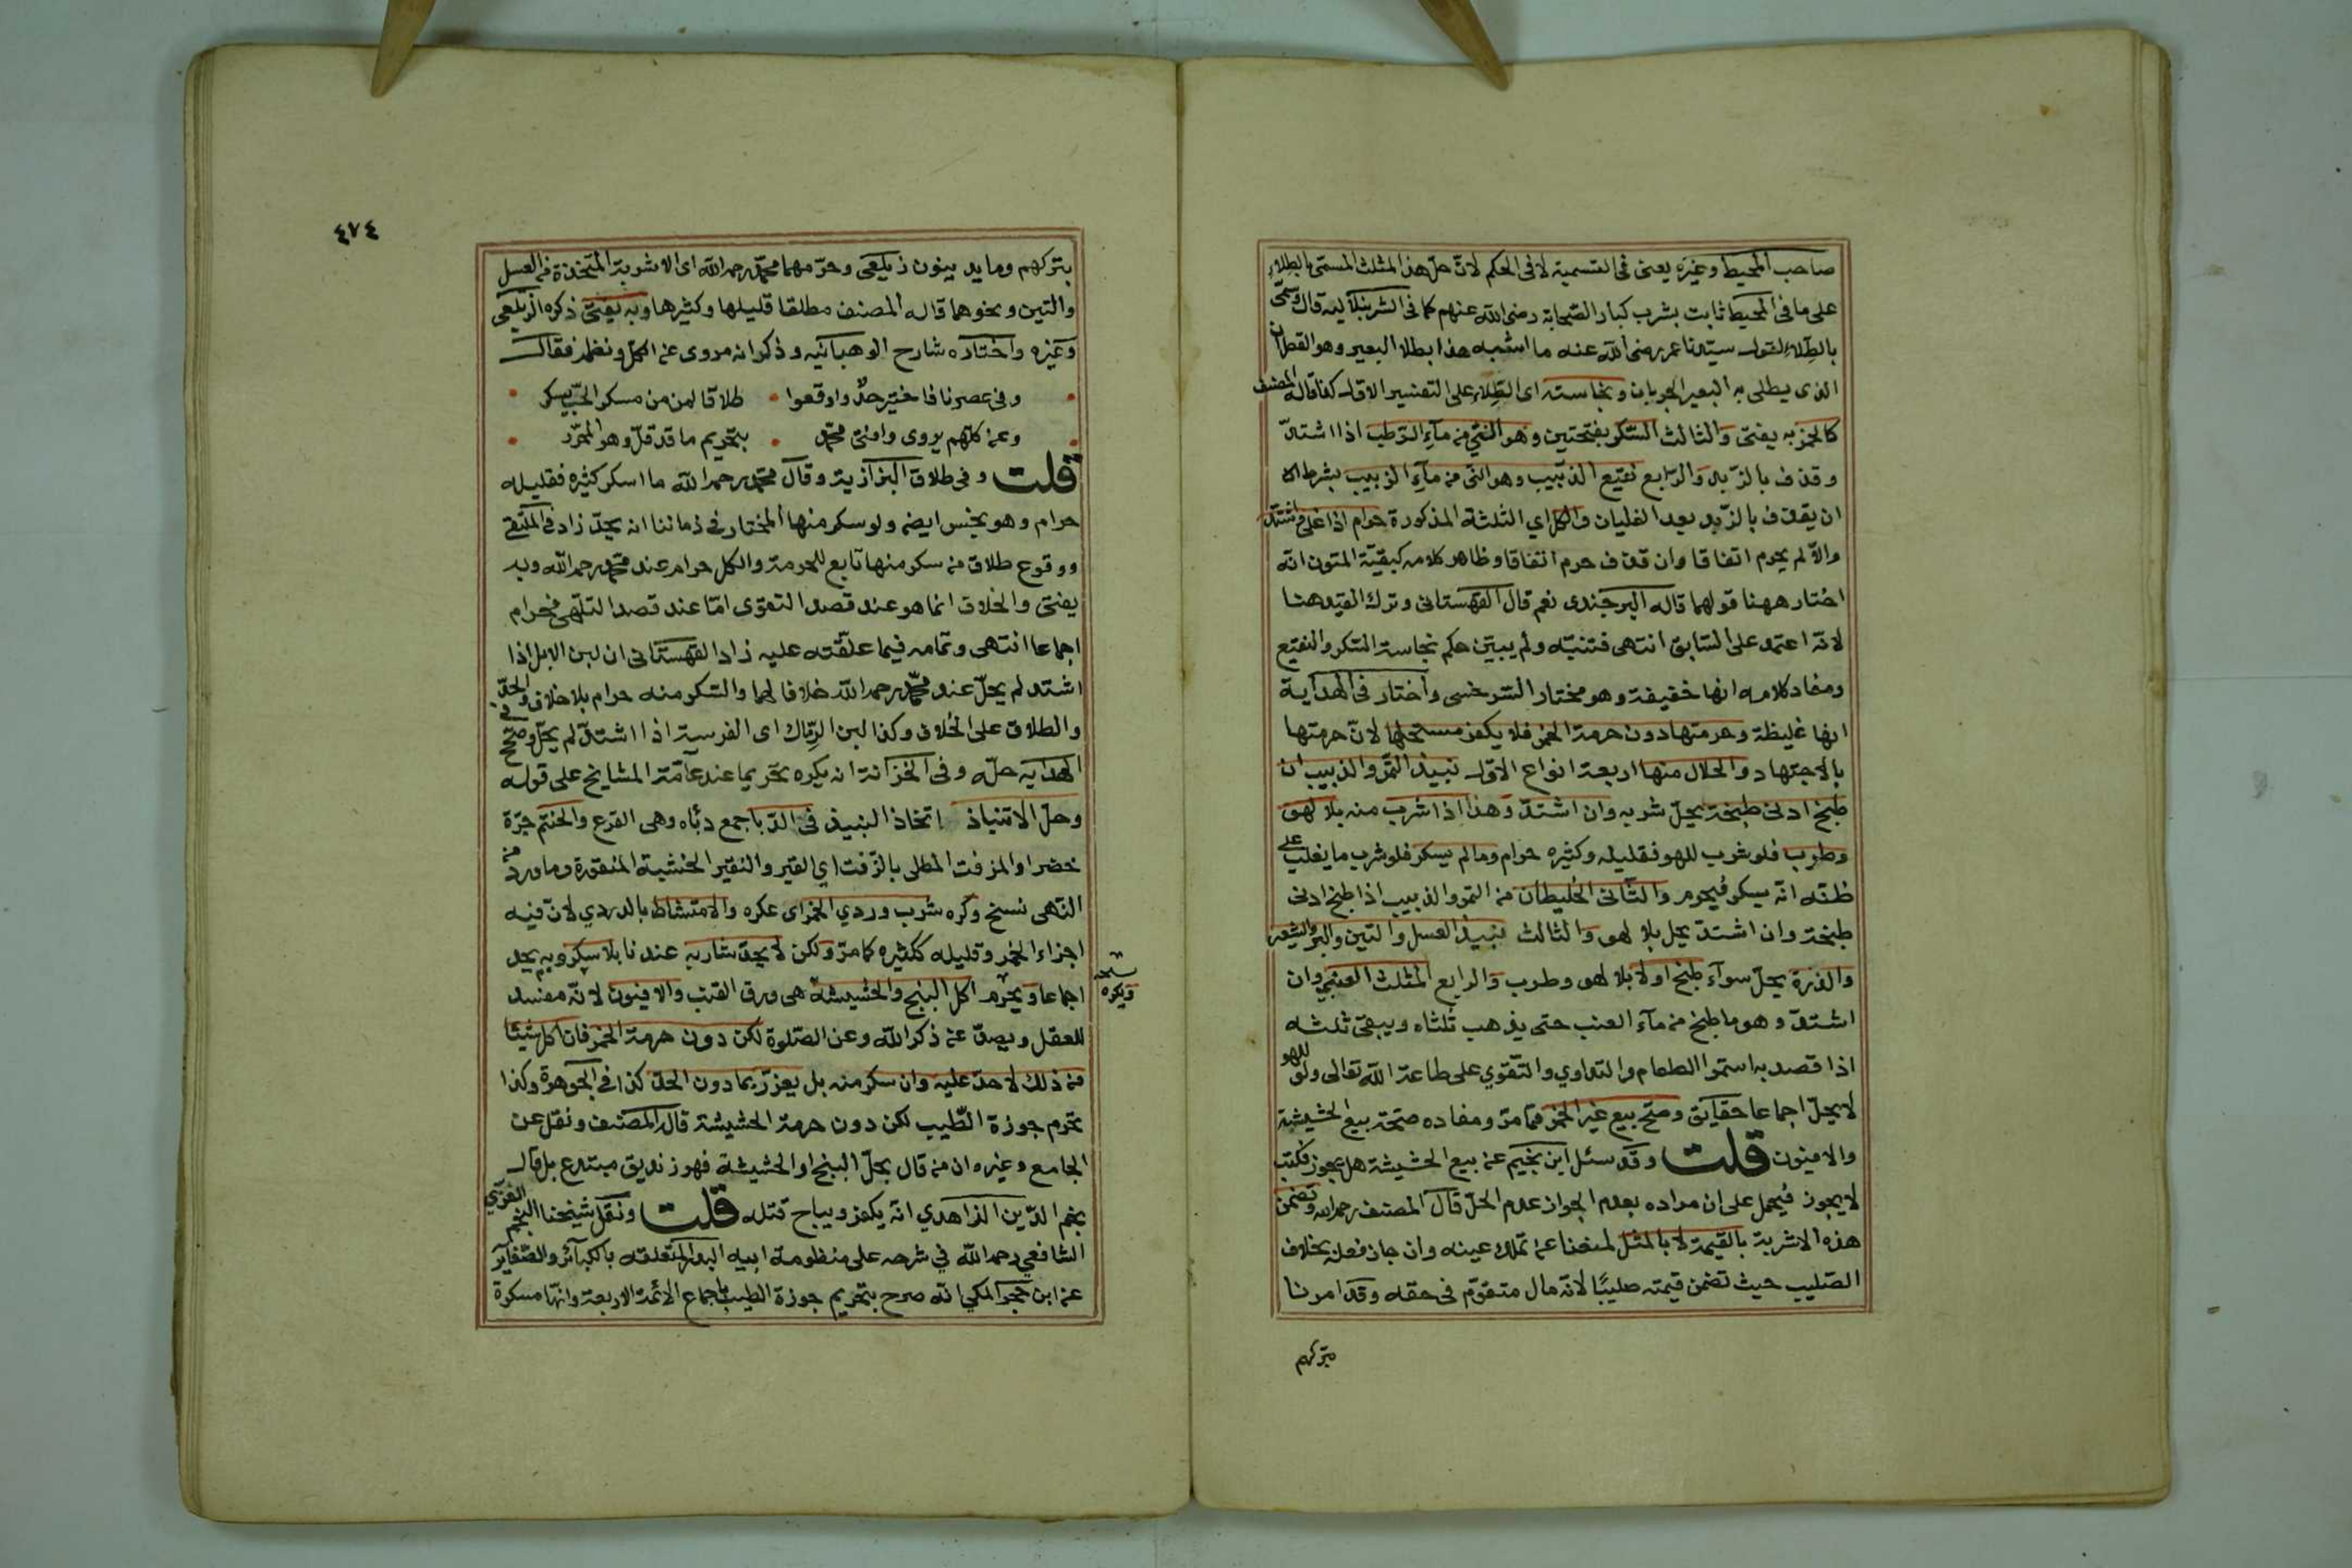 صاحب المحيط وغيره يعنى فى التسمية لا فى الحكم لانّ حلّ هذا المثلث المسمّى بالطلاء
على ما فى المحيط ثابت بشرب كبار الصّحابة رضى الله عنهم كما فى الشرنبلالية قال وسمّى
بالطّلاء لقول سيّدنا عمر رضى الله عنه ما اشبه هذا بطلا البعير وهو القطران
الذى يطلى به البعير الجربان ونجاسته اى الطّلاء على التفسير الاوّل كذا قاله المصنف
كالخمر به يفتى والثالث السّكر بفتحتين وهو النّي من مآء الرّطب اذا اشتدّ
وقذف بالزّبد والرّابع نقيع الزّبيب وهو النى من مآء الزبيب بشرط
ان يقذف بالزّبد بعد الغليان والكل اي الثلثة المذكورة حرام اذا غلى واشتدّ
والاّ لم يحرم اتفاقا وان قذف حرم اتفاقا وظاهر كلامه كبقيّة المتون انّه
اختار ههنا قولهما قاله البرجندى نعم قال القهستانى وترك القيد هنا
لانّه اعتمد على السّابق انتهى فتنبّه ولم يبيّن حكم نجاسة السّكر والنقيع
ومفاد كلامه انها خفيفة وهو مختار السّرخسى واختار فى الهداية
انها غليظة وحرمتها دون حرمة الخمر فلا يكفر مستحلها لانّ حرمتها
بالاجتهاد والحلال منها اربعة انواع الاوّل نبيذ التّمر والزبيب ان
طبخ ادنى طبخة يحلّ شربه وان اشتدّ وهذا اذا شرب منه بلا لهو
وطرب فلو شرب للهو فقليله وكثيره حرام وما لم يسكر فلو شرب ما يغلب على
ظنّه انّه يسكر فيحرم والثّانى الخليطان من التمر والزبيب اذا طبخ ادنى
طبخة وان اشتدّ يحل بلا لهو والثالث نبيذ العسل والتين والبرّ والشعير
والذرة يحلّ سوآء طبخ اولا بلا لهو وطرب والرابع المثلث العنبي وان
اشتدّ وهو ما طبخ من مآء العنب حتى يذهب ثلثاه ويبقى ثلثه
اذا قصد به استمرا الطعام والتداوي والتّقوي على طاعة الله تعالى ولو للهو
لا يحلّ اجماعا حقايق وصحّ بيع غير الخمر ممّا مرّ ومفاده صحّة بيع الحشيشة
والافيون قلت وقد سئل ابن نجيم عن بيع الحشيشة هل يجوز فكتب
لا يجوز فيحمل على ان مراده بعدم الجواز عدم الحلّ قال المصنف رحمه الله وتضمن
هذه الاشربة بالقيمة لا بالمثل لمنعنا عن تملك عينه وان جاز فعله بخلاف
الصّليب حيث تضمن قيمته صليبًا لانّه مال متقوّم فى حقه وقد امرنا
بتركهم
٤٧٤
بتركهم وما يدينون زيلعى وحرّمهما محمّد رحمه الله اى الاشربة المتخذة من العسل
والتين ونحوهما قاله المصنف مطلقا قليلها وكثيرها وبه يفتى ذكره الزيلعى
وغيره واختاره شارح الوهبانيه وذكر انه مروى عن الكل ونظمه فقال
وفى عصرنا فاختير حدّ واوقعوا • طلاقا لمن من مسكر الحبّ يسكر
وعن كلّهم يروى وافتى محمّد • بتحريم ما قد قلّ وهو المحرّر
قلت وفى طلاق البزازية وقال محمّد رحمه الله ما اسكر كثيره فقليله
حرام وهو نجس ايضا ولو سكر منها المختار فى زماننا انه يحدّ زاد فى الملتقى
ووقوع طلاق من سكر منها تابع للحرمة والكل حرام عند محمّد رحمه الله وبه
يفتى والخلاف انما هو عند قصد التقوّى امّا عند قصد التلهّى فحرام
اجماعا انتهى وتمامه فيما علّقته عليه زاد القهستانى ان لبن الابل اذا
اشتد لم يحلّ عند محمّد رحمه الله خلافا لهما والسّكر منه حرام بلا خلاف والحدّ
والطلاق على الخلاف وكذا لبن الرّماك اى الفرسة اذا اشتدّ لم يحلّ وصحّح فى
الهدايه حلّه وفى الخزانة انه يكره تحريما عند عامّة المشايخ على قوله
وحلّ الانتباذ اتخاذ النبيذ فى الدّبا جمع دبّاه وهى القرع والحنتم جرّة
خضرا والمزفت المطلى بالزّفت اي القير والنقير الخشبة المنقورة وما ورد من
النّهى نسخ وكره شرب دردي الخمر اى عكره والامتشاط بالدردي لانّ فيه
اجزاء الخمر وقليله ككثيره كما مرّ ولكن لا يحدّ شاربه عندنا بلا سكر وبه يحد
اجماعا ويحرم اكل البنج والحشيشة هى ورق القنب والافيون لانّه مفسد
نسخه ويكره
للعقل ويصدّ عن ذكر الله وعن الصّلوة لكن دون حرمة الخمر فان اكل شيئا
من ذلك لا حدّ عليه وان سكر منه بل يعزّر بما دون الحدّ كذا فى الجوهرة وكذا
تحرم جوزة الطّيب لكن دون حرمة الحشيشة قاله المصنف ونقل عن
الجامع وغيره ان من قال بحلّ البنج او الحشيشة فهو زنديق مبتدع بل قال
نجم الدّين الزاهدي انّه يكفر ويباح قتله قلت ونقل شيخنا النجم الغزّي
الشافعي رحمه الله في شرحه على منظومة ابيه البدر المتعلقه بالكبآئر والصّغآير
عن ابن حجر المكي انّه صرح بتحريم جوزة الطيب باجماع الائمّة الاربعة وانّها مسكرة